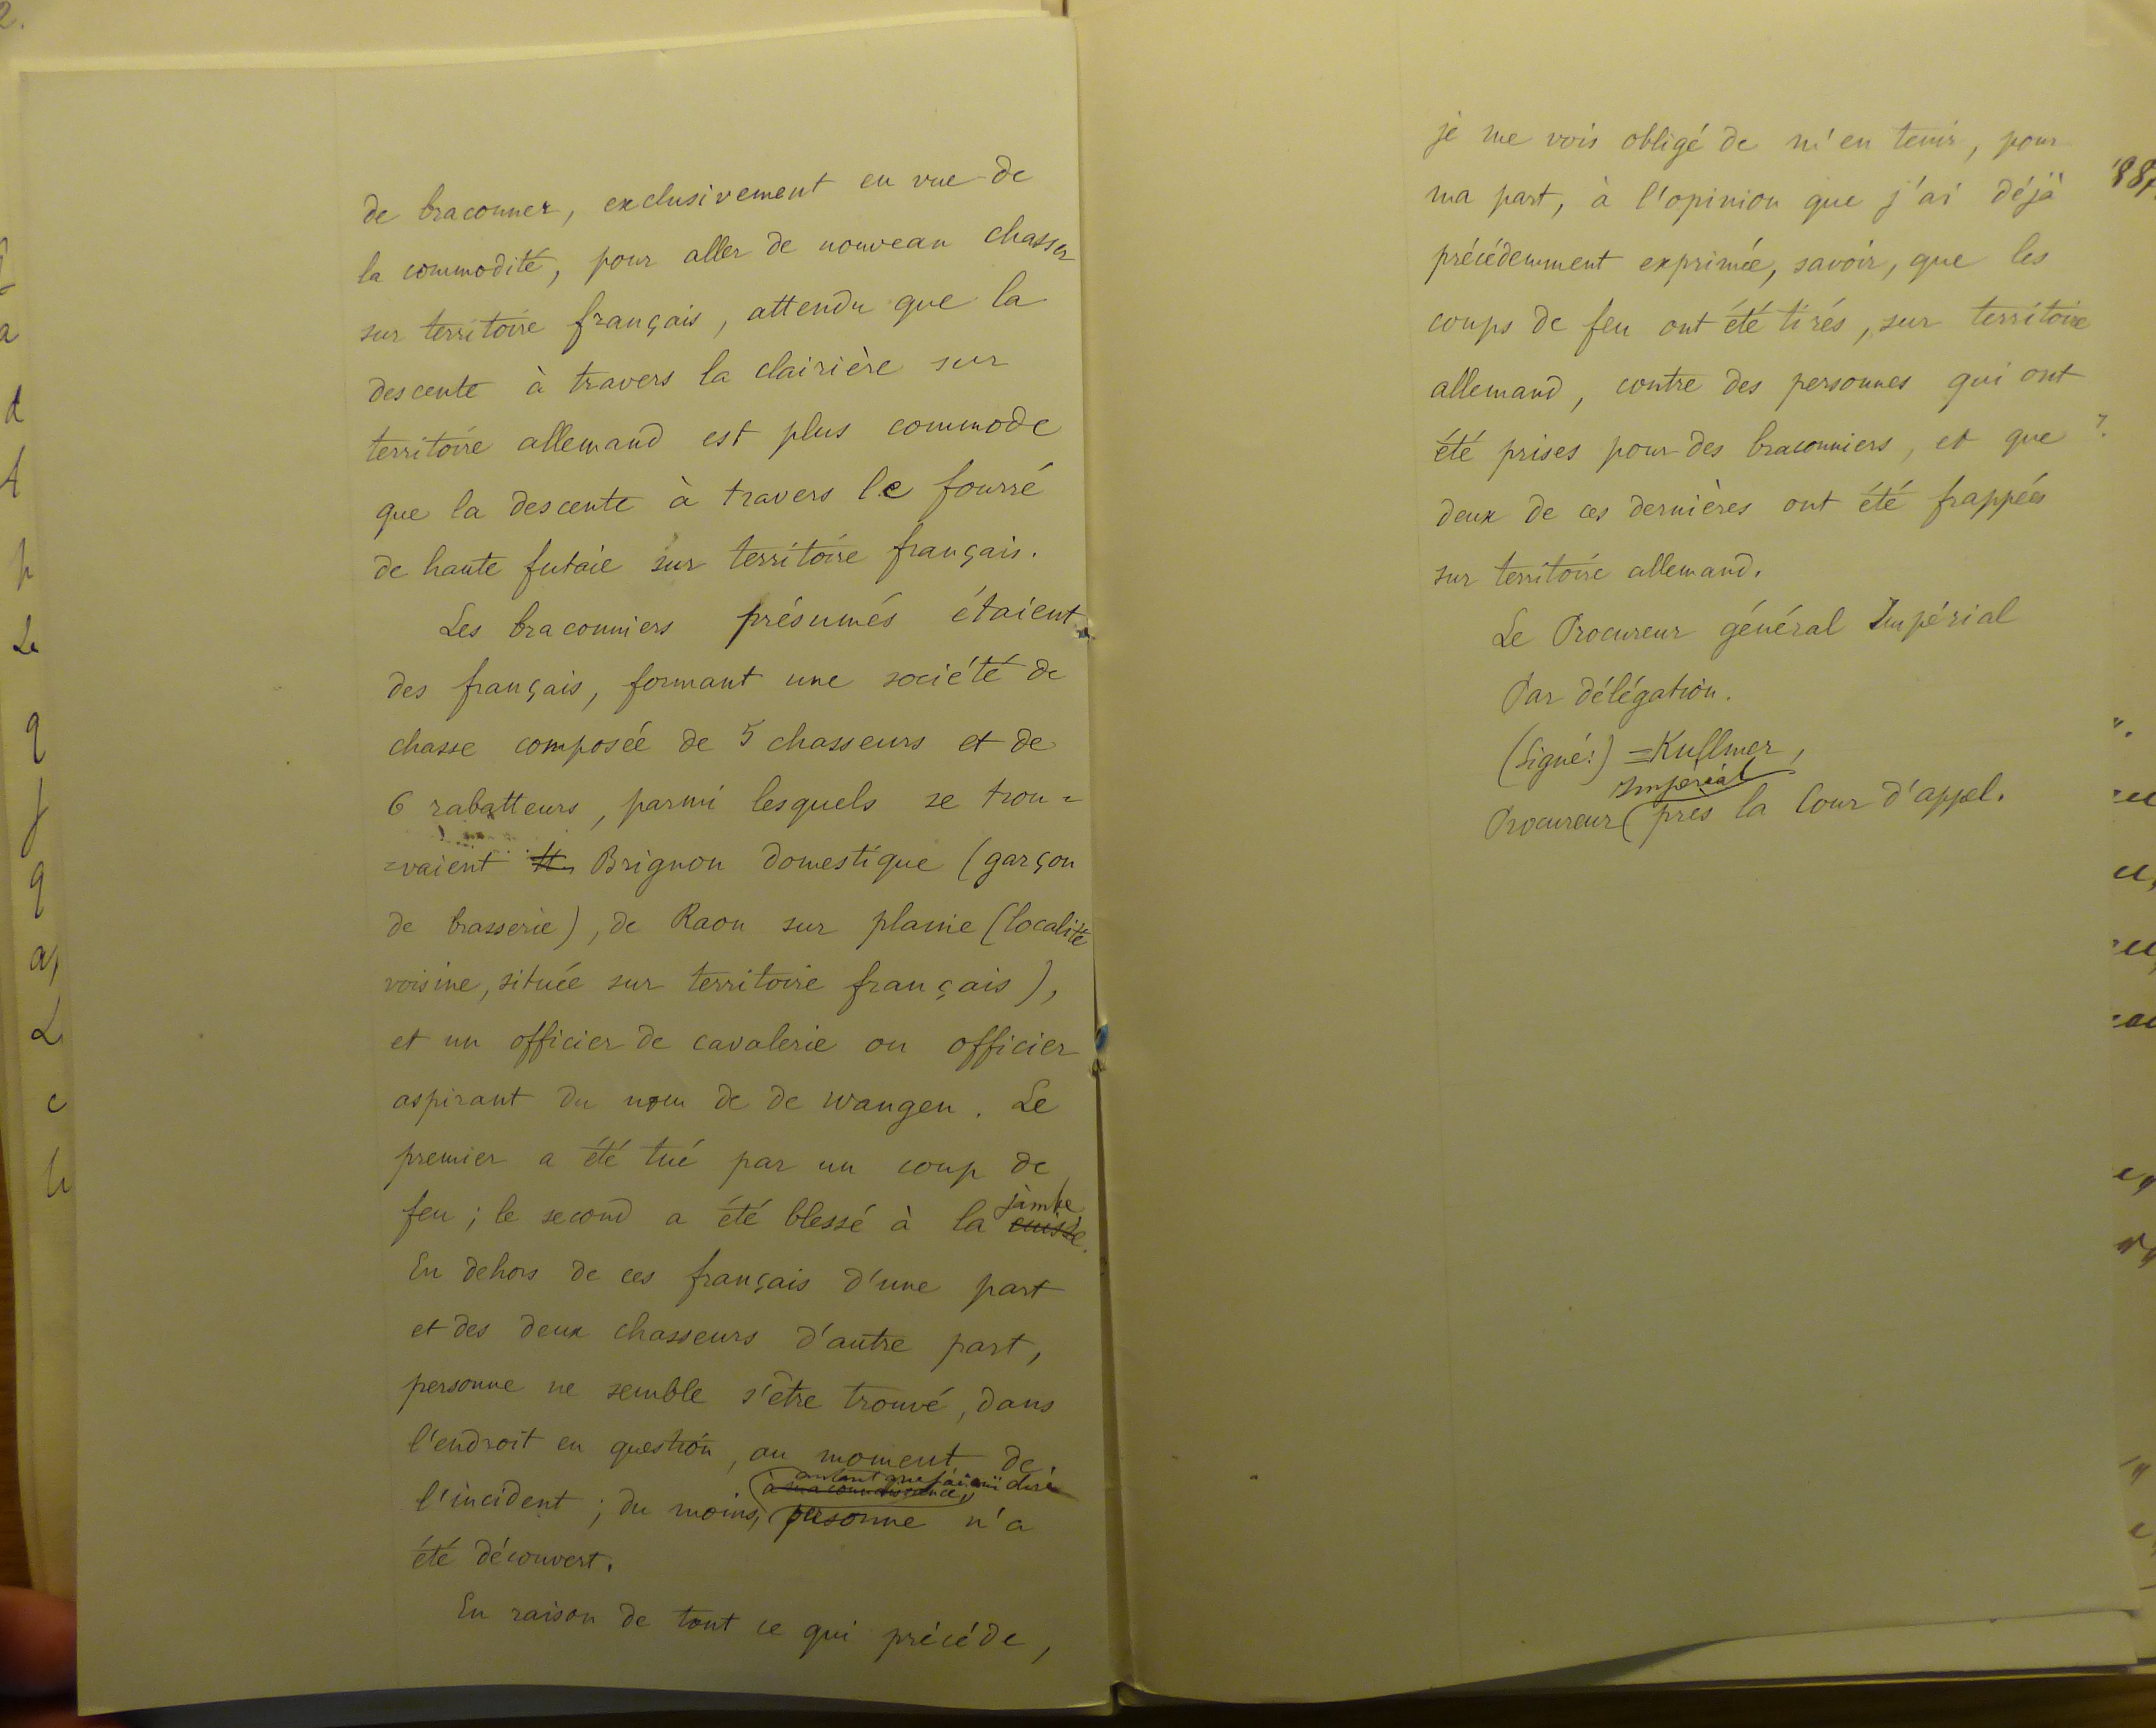 de braconner, exclusivement en vue de
la commodité, pour aller de nouveau chasser
sur territoire français, attendu que la
descente à travers la clairière sur
territoire allemand est plus commode
que la descente à travers le fourré
de haute futaie sur territoire français.
Les braconniers présumés étaient
des français, formant une société de
chasse composée de 5 chasseurs et de
6 rabatteurs, parmi lesquels se trou=
=vaient Brignon domestique (garçon
de brasserie), de Raon sur plaine (localité
voisine, située sur territoire français),
et un officier de cavalerie ou officier
aspirant du nom de de Wangen. Le
premier a été tué par un coup de
feu ; le second a été blessé à la cuisse jambe.
En dehors de ces français d'une part
et des deux chasseurs d'autre part,
personne ne semble s'être trouvé, dans
l'endroit en question, au moment de
l'incident ; du moins, à ma connaissance, autant que j'ai ouï dire personne n'a
été découvert.
En raison de tout ce qui précède,
je me vois obligé de m'en tenir, pour
ma part, à l'opinion que j'ai déjà
précédemment exprimée, savoir, que les
coups de feu ont été tirés, sur territoire
allemand, contre des personnes qui ont
été prises pour des braconniers, et que
deux de ces dernières ont été frappées
sur territoire allemand.
Le Procureur général Impérial
Par délégation.
(Signé:) = Kullmer,
Procureur Impérial près la Cour d'appel.